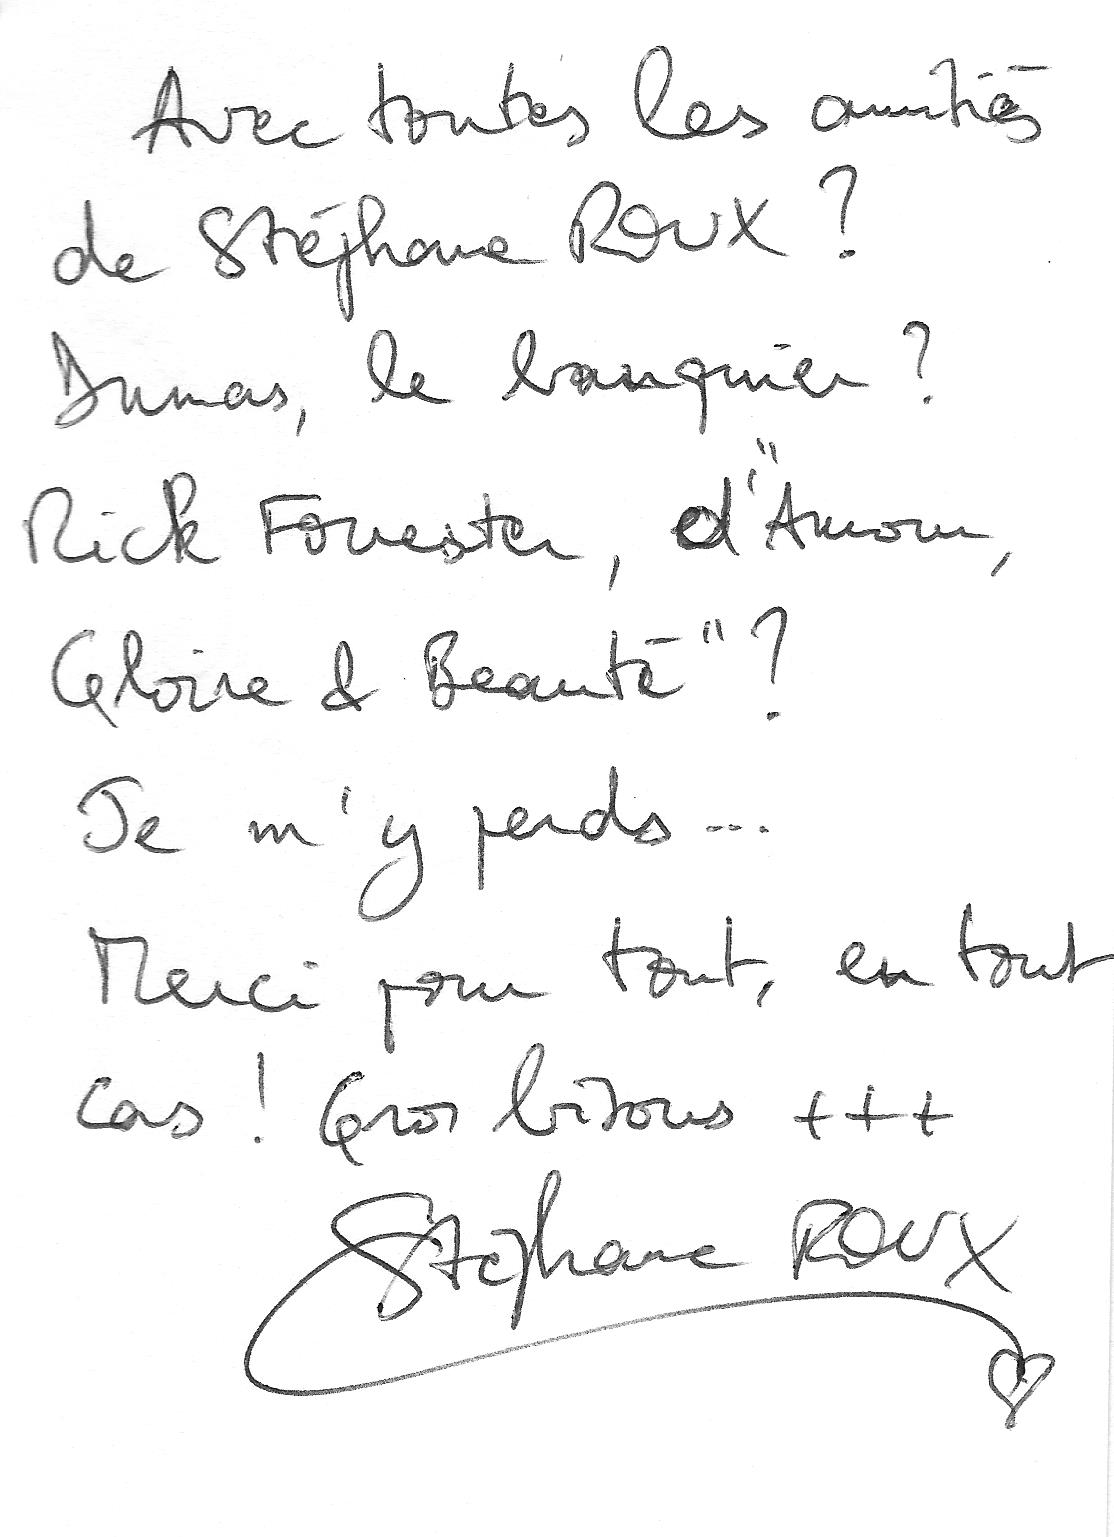 Avec toutes les amitiés
de Stéphane ROUX ?
Dumas, le banquier ?
Rick Forrester, d'"Amour,
Gloire & Beauté" ?
Je m'y perds...
Merci pour tout, en tout
cas ! Gros bisous +++
Stéphane ROUX